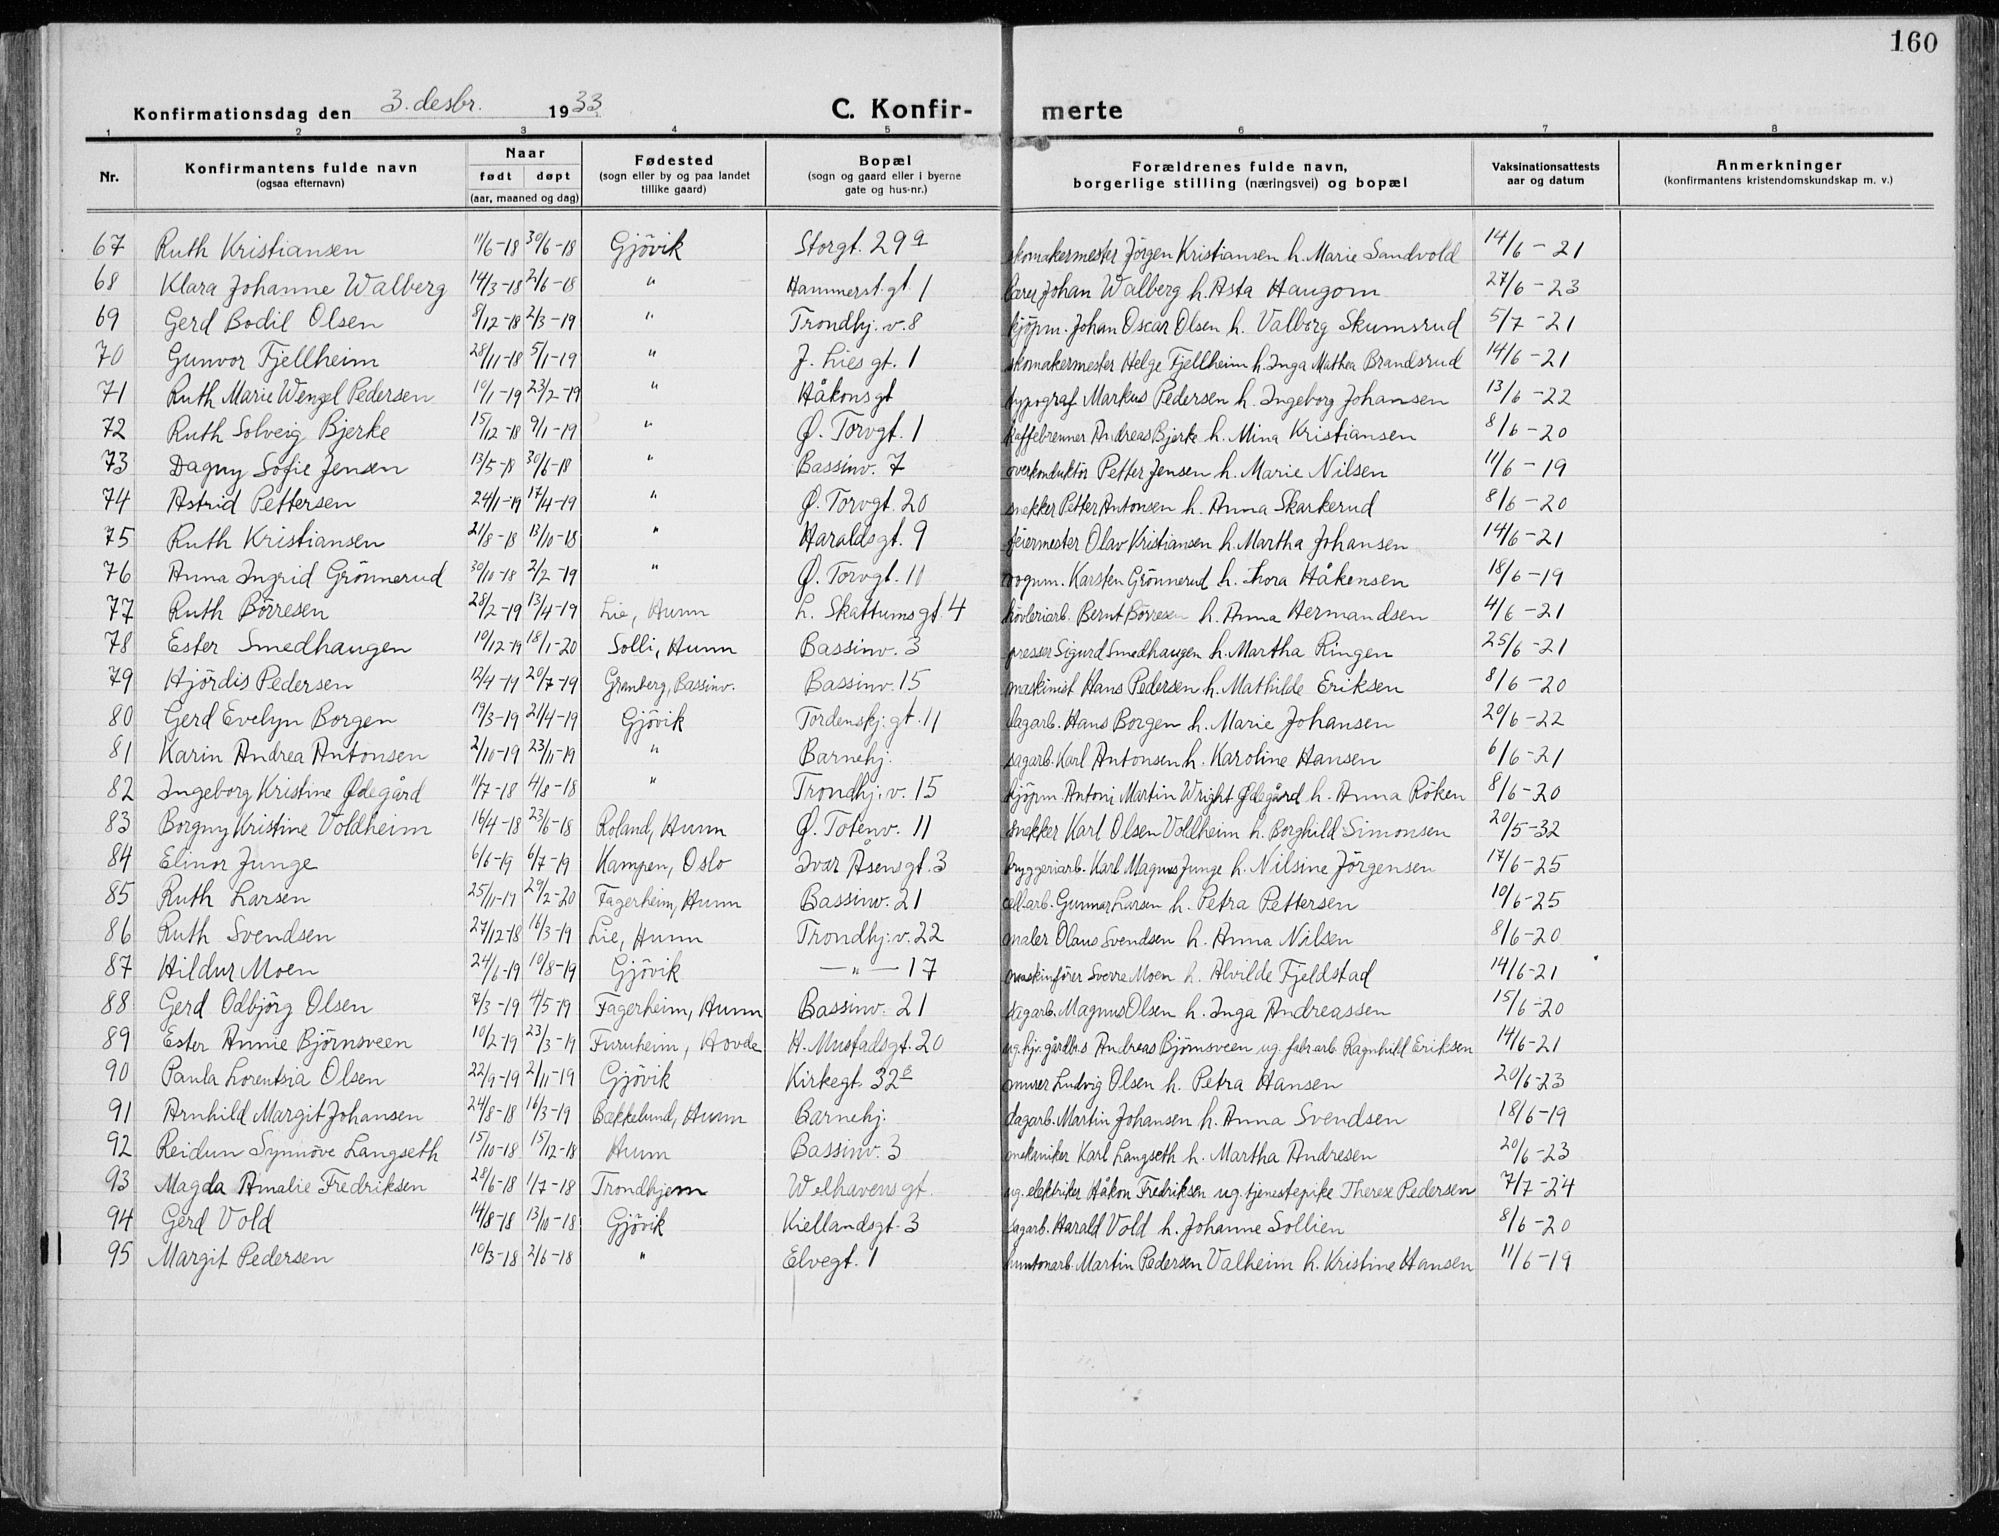 160
Konfirmationsdag den 3. desbr. 1933. C. Konfir- merte
1 2 3 4 5 6 7 8
Nr. Konfirmantens fulde navn (ogsaa efternavn) Naar født døpt (aar, maaned og dag) Fødested (sogn eller by og paa landet tillike gaard) Bopæl (sogn og gaard eller i byerne gate og hus-nr.) Forældrenes fulde navn, borgerlige stilling (næringsvei) og bopæl Vaksinationsattests aar og datum Anmerkninger (konfirmantens kristendomskundskap m. v.)
67 Ruth Kristiansen 11/6-18 30/6-18 Gjövik Storgt. 29a skomakermester Jörgen Kristiansen h. Marie Sandvold 14/6-21
68 Klara Johanne Walberg 14/3-18 2/6-18 " Hammerst. gt. 1 lærer Johan Walberg h. Asta Haugom 27/6-23
69 Gerd Bodil Olsen 8/12-18 2/3-19 " Trondhj. v. 8 kjöpm. Johan Oscar Olsen h. Valborg Skumsrud 5/7-21
70 Gunvor Fjellheim 28/11-18 5/1-19 " J. Lies gt. 1 skomakermester Helge Fjellheim h. Inga Mathea Brandsrud 14/6-21
71 Ruth Marie Wengel Pedersen 10/1-19 23/2-19 " Håkonsgt typograf Markus Pedersen h. Ingeborg Johansen 13/6-22
72 Ruth Solveig Bjerke 15/12-18 9/1-19 " Ø. Torvgt. 1 kaffebrenner Andreas Bjerke h. Mina Kristiansen 8/6-20
73 Dagny Sofie Jensen 13/5-18 30/6-18 " Bassinv. 7 overkonduktör Petter Jensen h. Marie Nilsen 11/6-19
74 Astrid Pettersen 24/1-19 17/4-19 " Ø. Torvgt. 20 snekker Petter Antonsen h. Anna Skarkerud 8/6-20
75 Ruth Kristiansen 21/8-18 13/10-18 " Haraldsgt. 9 feiermester Olav Kristiansen h. Martha Johansen 14/6-21
76 Anna Ingrid Grönnerud 30/10-18 2/2-19 " Ø. Torvgt. 11 vognm. Karsten Grönnerud h. Thora Håkensen 18/6-19
77 Ruth Börresen 28/2-19 13/4-19 Lie, Hunn L. Skattumsgt. 4 hövleriarb. Bernt Börresen h. Anna Hermandsen 4/6-21
78 Ester Smedhaugen 10/12-19 18/1-20 Solli, Hunn Bassinv. 3 presser Sigurd Smedhaugen h. Martha Ringen 25/6-21
79 Hjördis Pedersen 12/4-19 20/7-19 Granberg, Bassinv. Bassinv. 15 maskinist Hans Pedersen h. Mathilde Eriksen 8/6-20
80 Gerd Evelyn Borgen 19/3-19 21/4-19 Gjövik Tordenskj. gt. 11 dagarb. Hans Borgen h. Marie Johansen 20/6-22
81 Karin Andrea Antonsen 2/10-19 23/11-19 " Barnehj. sagarb. Karl Antonsen h. Karoline Hansen 6/6-21
82 Ingeborg Kristine Ødegård 11/7-18 4/8-18 " Trondhj. v. 15 kjöpm. Antoni Martin Wright Ødegård h. Anna Röken 8/6-20
83 Borgny Kristine Voldheim 16/4-18 23/6-18 Roland, Hunn Ø. Totenv. 11 snekker Karl Olsen Voldheim h. Borghild Simonsen 20/5-32
84 Elinor Junge 6/6-19 6/7-19 Kampen, Oslo Ivar Åsensgt. 3 bryggeriarb. Karl Magnus Junge h. Nilsine Jörgensen 17/6-25
85 Ruth Larsen 25/11-19 29/2-20 Fagerheim, Hunn Bassinv. 21 cell.arb. Gunnar Larsen h. Petra Pettersen 10/6-25
86 Ruth Svendsen 27/12-18 16/3-19 Lie, Hunn Trondhj. v. 22 maler Olaus Svendsen h. Anna Nilsen 8/6-20
87 Hildur Moen 24/6-19 10/8-19 Gjövik —"— 17 maskinförer Sverre Moen h. Alvilde Fjeldstad 14/6-21
88 Gerd Odbjörg Olsen 7/3-19 4/5-19 Fagerheim, Hunn Bassinv. 21 sagarb. Magnus Olsen h. Inga Andreassen 15/6-20
89 Ester Annie Björnsveen 10/2-19 23/3-19 Furuheim, Hovde H. Mustadsgt. 20 ug. hjv. gårdbr.s Andreas Björnsveen ug. fabr.arb. Ragnhild Eriksen 14/6-21
90 Paula Lorentsia Olsen 22/9-19 2/11-19 Gjövik Kirkegt. 32b murer Ludvig Olsen h. Petra Hansen 20/6-23
91 Arnhild Margit Johansen 24/8-18 16/3-19 Bakkelund, Hunn Barnehj. dagarb. Martin Johansen h. Anna Svendsen 18/6-19
92 Reidun Synnöve Langseth 15/10-18 15/12-18 Hunn Bassinv. 3 mekaniker Karl Langseth h. Martha Andresen 20/6-23
93 Magda Amalie Fredriksen 28/6-18 1/7-18 Trondhjem Welhavensgt. ug. elektriker Håkon Fredriksen ug. tjenestepike Therese Pedersen 7/7-24
94 Gerd Vold 14/8-18 13/10-18 Gjövik Kiellandsgt. 3 sagarb. Harald Vold h. Johanne Sollien 8/6-20
95 Margit Pedersen 10/3-18 2/6-18 " Elvegt. 1 huntonarb. Martin Pedersen Valheim h. Kristine Hansen 11/6-19